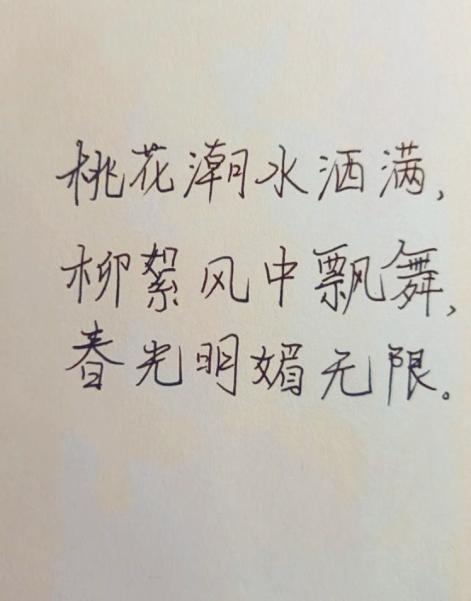 桃花潮水洒满,
柳絮风中飘舞,
春光明媚无限。